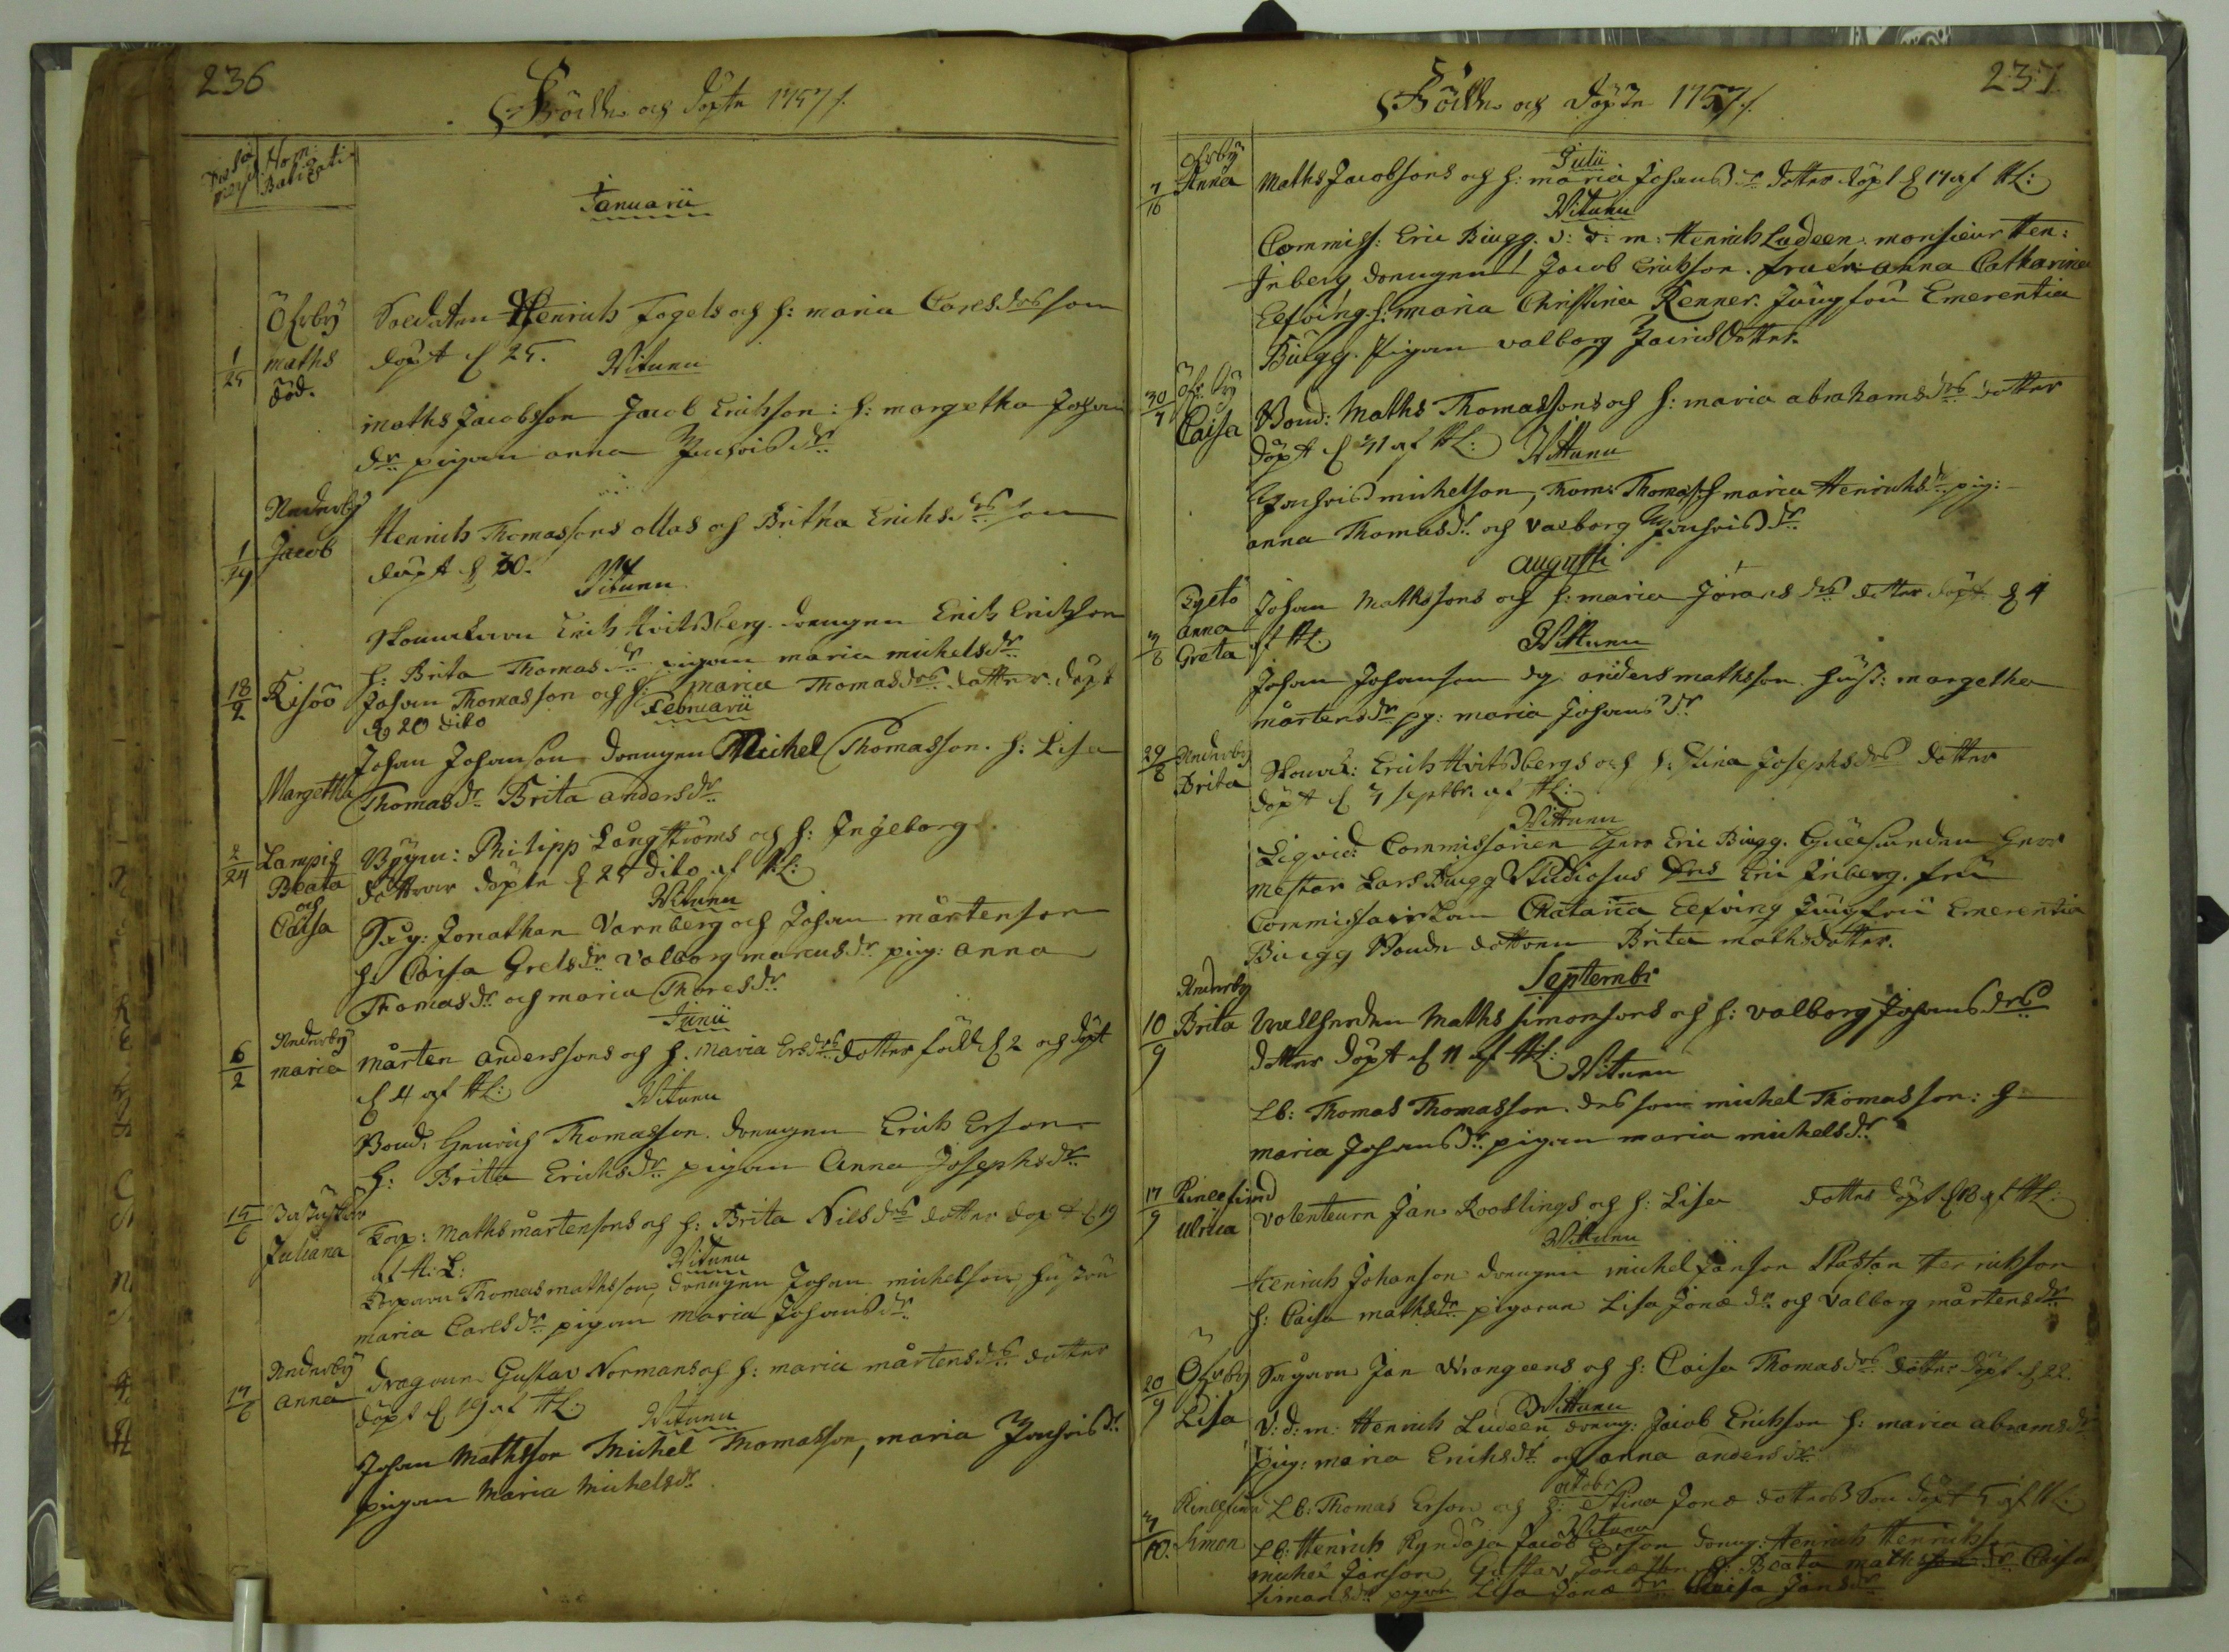 236
Födde och döpte 1757/.
Nom: Babtizati
Januarii
Öfvby Soldaten Henrich Fogels och h: maria Carlsdrs son
1/25 maths död. döpt d 25. Vitnen
maths Jacobsson Jacob Ericksson: h: margetha Johans
dr pigan anna Henrisdr
Nederby Henrich Thomassons ollas och Britha Erichsdrs son
Jacob döpt d 30.
Vitnen
Erich Hvitsberg drengen Erich Erichson
h: Brita Thomasdr pigan maria michelsdr
18/2 Kisöö Johan Thomasson och h: maria Thomasdrs dotter döpt
d 20 dito Februarii
Johan Johanson drengen Michel Thomasson. h: Lisa
Margetha Thomasdr Brita andersdr
2/24 Lampis Philipp Långströms och h: Ingeborg
Beata och Caisa döttrar döpte d 25 dito af HL:
Vitnen
Jonathan Varnberg och Johan mårtenson
h: Caisa Grelsdr Valborg marcusdr pig: anna
Thomasdr och maria Thoresdr
Junii
Nederby
6/2 maria mårten anderssons och h. maria Ersdrs dotter född d 2 och döpt
d 4 af HL:
Vitnen
Bond: Henrich Thomasson. drengen Erich Erson
h: Britta Erichsdr pigan Anna Josephsdr
15/6 Juliana Torp: Maths mårtensons och h: Brita Nilsdrs dotter döpt d 19
af H: L:
Vitnen
Torparen Thomas mathsson, drengen Johan michelson, hustru
maria Carlsdr pigan maria Johansdr
Nederby
17/6 anna dragoun Gustav Normans och h: maria mårtensdrs dotter
döpt d 19 af HL:
Vitnen
Johan Mathsson Michel Thomasson, maria Henrisdr
pigan Maria Michelsdr
237.
Födde och döpte 1757/.
Julii
Öfvby
7/16 Anna Maths Jacobsons och h: maria Johansdr dotter döpt d 17 af HL:
Vitnen
Commiss: Eric Biugg. v: d: m: Henrich Ludeen. monsieur Hen:
Friberg drengen Jacob Erickson. fruer anna Catharina
Elfving. h. maria Christina Renner. Jungfru Emerentia
Biugg. Pigan valborg Henrisdotter.
Öfvby
30/7 Caisa Bond: Maths Thomassons och h: maria abrahamsdrs dotter
döpt d 31 af HL:
Vittnen
michelson, Thom: Thomass. h maria Henrichsdr pig:
anna Thomasdr och valborg Henrisdr
augusti
3/8 anna Greta Johan Mathssons och h: maria Jöransdrs dotter döpt d 4
af HL.
Vittnen
Johan Johanson dg. anders mathsson. hust: margetha
mårtensdr pg: maria Johansdr
Nederby
29/8 Brita Erich Hvitsbergs och h: Stina Josephsdrs dotter
döpt d 4 septbr. af HL:
Vittnen
Liqvid: Commissarien herr Eric Biugg. herr
mester Lars Biugg Studiosus Dns Eric Friberg. fru
Commissarskan Chatarina Elfving Jungfru Emerentia
Biugg Bonde dottren Brita mathsdotter.
Septembr
Nederby
10/9 Brita Maths simonsons och h: valborg Johansdrs
dotter döpt d 11 af HL:
Vitnen
Lb: Thomas Thomasson. des son michel Thomasson: h
maria Johansdr. pigan maria michelsdr
17/9 Ulrica Jan Rooslings och h: Lisa dotter döpt d 18 af HL:
Vittnen
Henrich Johanson drengen michel Janson Staffan Henrickson
h: Caisa mathsdr pigorne Lisa Jonædr och Valborg mårtensdr
Öfvby
20/9 Lisa Jan Wrangeens och h: Caisa Thomasdrs dotter döpt d 22
Vittnen
V: d: m: Henrich Ludeen dreng: Jacob Erickson h: maria abramsdr
pig: maria Erichsdr och anna andersdr
octobr
3/10. Simon Lb: Thomas Erson och h: Stina Jonæ dotters son döpt 5 af HL:
Vitnen
Lb: Henrich Jacob Erson dreng: Henrich Henrichson
michel Janson Gustav h: Beata maths dr Caisa
Simonsdr pigan Lisa Jonædr Caisa Jansdr